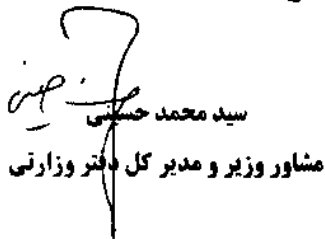 سید محمد حسینی
مشاور وزیر و مدیر کل دفتر وزارتی